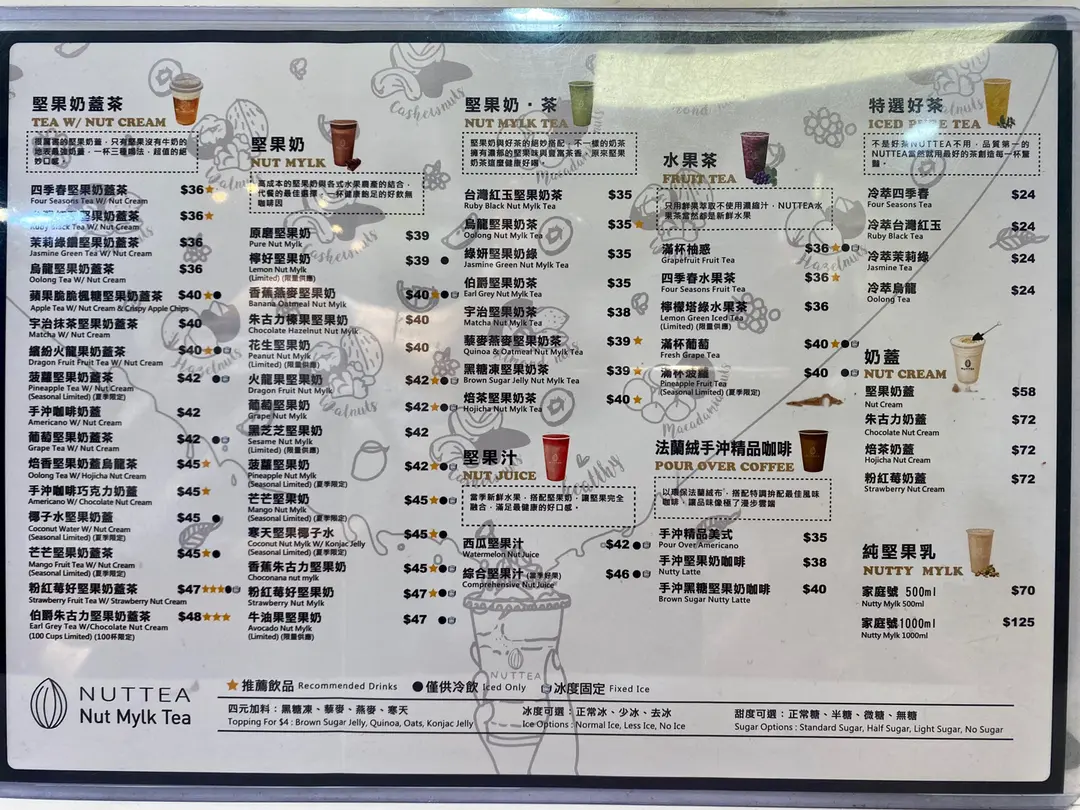 堅果奶蓋茶
TEA W/ NUT CREAM
很厲害的堅果奶蓋，只有堅果沒有牛奶的
地表最強奶蓋，一杯三種喝法，超值的絕
妙口感。
四季春堅果奶蓋茶 $36★
Four Seasons Tea W/ Nut Cream
堅果奶蓋茶 $36★
Ruby Black Tea W/ Nut Cream
茉莉綠鑽堅果奶蓋茶 $36
Jasmine Green Tea W/ Nut Cream
烏龍堅果奶蓋茶 $36
Oolong Tea W/ Nut Cream
蘋果脆脆楓糖堅果奶蓋茶 $40★●
Apple Tea W/ Nut Cream & Crispy Apple Chips
宇治抹茶堅果奶蓋茶 $40
Matcha W/ Nut Cream
繽紛火龍果奶蓋茶 $40★●
Dragon Fruit Fruit Tea W/ Nut Cream
菠蘿堅果奶蓋茶 $42 ●
Pineapple Tea W/ Nut Cream
(Seasonal Limited) (夏季限定)
手沖咖啡奶蓋 $42
Americano W/ Nut Cream
葡萄堅果奶蓋茶 $42 ●
Grape Tea W/ Nut Cream
焙香堅果奶蓋烏龍茶 $45★
Oolong Tea W/ Hojicha Nut Cream
手沖咖啡巧克力奶蓋 $45★
Americano W/ Chocolate Nut Cream
椰子水堅果奶蓋 $45 ●
Coconut Water W/ Nut Cream
(Seasonal Limited) (夏季限定)
芒芒堅果奶蓋茶 $45★●
Mango Fruit Tea W/ Nut Cream
(Seasonal Limited) (夏季限定)
粉紅莓好堅果奶蓋茶 $47★★★●
Strawberry Fruit Tea W/ Strawberry Nut Cream
伯爵朱古力堅果奶蓋茶 $48★★★
Earl Grey Tea W/Chocolate Nut Cream
(100 Cups Limited) (100杯限定)
堅果奶
NUT MYLK
高成本的堅果奶與各式水果農產的結合，
代餐的最佳選擇，一杯健康飽足的好飲無
咖啡因
原磨堅果奶 $39
Pure Nut Mylk
檸好堅果奶 $39 ●
Lemon Nut Mylk
(Limited) (限量供應)
香蕉燕麥堅果奶 $40★●
Banana Oatmeal Nut Mylk
朱古力榛果堅果奶 $40
Chocolate Hazelnut Nut Mylk
花生堅果奶 $40
Peanut Nut Mylk
(Limited) (限量供應)
火龍果堅果奶 $42★●
Dragon Fruit Nut Mylk
葡萄堅果奶 $42★●
Grape Nut Mylk
黑芝芝堅果奶 $42
Sesame Nut Mylk
(Limited) (限量供應)
菠蘿堅果奶 $42★●
Pineapple Nut Mylk
(Seasonal Limited) (夏季限定)
芒芒堅果奶 $45★●
Mango Nut Mylk
(Seasonal Limited) (夏季限定)
寒天堅果椰子水 $45★●
Coconut Nut Mylk W/ Konjac Jelly
(Seasonal Limited) (夏季限定)
香蕉朱古力堅果奶 $45★●
Choconana nut mylk
粉紅莓好堅果奶 $47★●
Strawberry Nut Mylk
牛油果堅果奶 $47 ●
Avocado Nut Mylk
(Limited) (限量供應)
堅果奶・茶
NUT MYLK TEA
堅果奶與好茶的絕妙搭配，不一樣的奶茶
擁有濃郁的堅果味與豐富茶香。原來堅果
奶茶這麼健康好喝。
台灣紅玉堅果奶茶 $35
Ruby Black Nut Mylk Tea
烏龍堅果奶茶 $35★
Oolong Nut Mylk Tea
綠妍堅果奶綠 $35
Jasmine Green Nut Mylk Tea
伯爵堅果奶茶 $35
Earl Grey Nut Mylk Tea
宇治堅果奶茶 $38
Matcha Nut Mylk Tea
藜麥燕麥堅果奶茶 $39★
Quinoa & Oatmeal Nut Mylk Tea
黑糖凍堅果奶茶 $39★
Brown Sugar Jelly Nut Mylk Tea
焙茶堅果奶茶 $40★
Hojicha Nut Mylk Tea
堅果汁
NUT JUICE
當季新鮮水果，搭配堅果奶，讓堅果完全
融合，滿足最健康的好口感。
西瓜堅果汁 $42●
Watermelon Nut Juice
綜合堅果汁 (當季好果) $46●
Comprehensive Nut Juice
水果茶
FRUIT TEA
只用鮮果萃取不使用濃縮汁，NUTTEA水
果茶當然都是新鮮水果
滿杯柚惑 $36★●
Grapefruit Fruit Tea
四季春水果茶 $36★
Four Seasons Fruit Tea
檸檬塔綠水果茶 $36
Lemon Green Iced Tea
(Limited) (限量供應)
滿杯葡萄 $40★●
Fresh Grape Tea
滿杯菠蘿 $40 ●
Pineapple Fruit Tea
(Seasonal Limited) (夏季限定)
法蘭絨手沖精品咖啡
POUR OVER COFFEE
以環保法蘭絨布，搭配特調拚配最佳風味
咖啡，讓品味像極了漫步雲端
手沖精品美式 $35
Pour Over Americano
手沖堅果奶咖啡 $38
Nutty Latte
手沖黑糖堅果奶咖啡 $40
Brown Sugar Nutty Latte
特選好茶
ICED PURE TEA
不是好茶NUTTEA不用，品質第一的
NUTTEA當然就用最好的茶創造每一杯驚
豔。
冷萃四季春 $24
Four Seasons Tea
冷萃台灣紅玉 $24
Ruby Black Tea
冷萃茉莉綠 $24
Jasmine Tea
冷萃烏龍 $24
Oolong Tea
奶蓋
NUT CREAM
堅果奶蓋 $58
Nut Cream
朱古力奶蓋 $72
Chocolate Nut Cream
焙茶奶蓋 $72
Hojicha Nut Cream
粉紅莓奶蓋 $72
Strawberry Nut Cream
純堅果乳
NUTTY MYLK
家庭號 500ml $70
Nutty Mylk 500ml
家庭號1000ml $125
Nutty Mylk 1000ml
NUTTEA
NUTTEA
Nut Mylk Tea
★推薦飲品 Recommended Drinks ●僅供冷飲 Iced Only 冰度固定 Fixed Ice
四元加料：黑糖凍、藜麥、燕麥、寒天
Topping For $4 : Brown Sugar Jelly, Quinoa, Oats, Konjac Jelly
冰度可選：正常冰、少冰、去冰
Ice Options : Normal Ice, Less Ice, No Ice
甜度可選：正常糖、半糖、微糖、無糖
Sugar Options : Standard Sugar, Half Sugar, Light Sugar, No Sugar